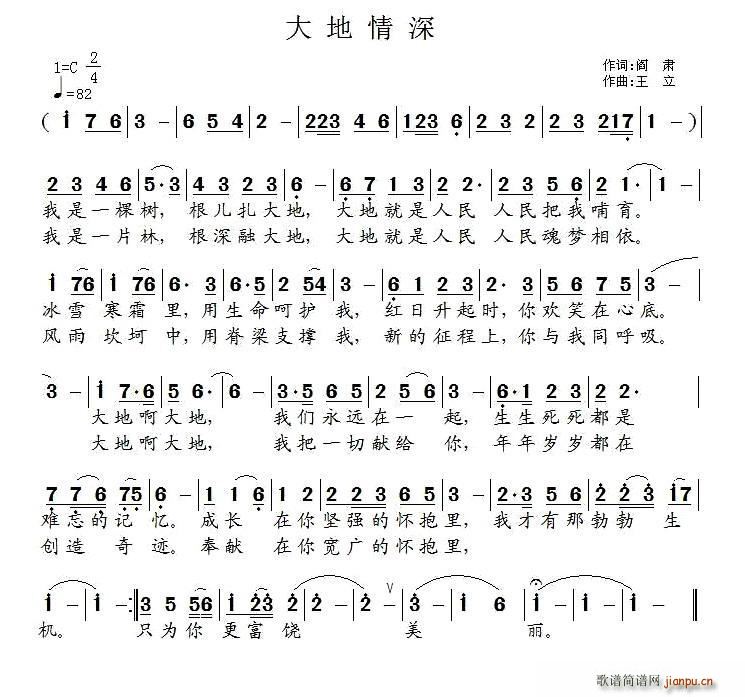 大地情深
1=C 2/4
作词:阎 肃
♩=82
作曲:王 立
( i 7 6 | 3 - | 6 5 4 | 2 - | 223 4 6 | 123 6 | 2 3 2 | 2 3 217 | 1 - ) |
2 3 4 6 | 5·3 | 4 3 2 3 | 6 - | 6 7 1 3 | 2 2· | 2 3 5 6 | 2 1· | 1 - |
我是一棵树，根儿扎大地，大地就是人民 人民把我哺育。
我是一片林，根深融大地，大地就是人民 人民魂梦相依。
i 76 i 76 | 6· 3 | 6·5 2 54 | 3 - | 6 1 2 3 | 2 - | 5 6 7 5 | 3 - |
冰雪 寒霜 里，用生命呵护 我，红日升起时，你欢笑在心底。
风雨 坎坷 中，用脊梁支撑 我，新的征程上，你与我同呼吸。
3 - | i 7·6 | 5 6· | 6 - | 3·5 6 5 | 2 5 6 | 3 - | 6·1 2 3 | 2 2· |
大地啊大地，我们永远在一 起，生生死死都是
大地啊大地，我把一切献给 你，年年岁岁都在
7 7 6 75 | 6 - | 1 1 6 | 1 - | 2 2 3 6 5 | 3 - | 2·3 5 | 2 2 3 i7 |
难忘的记 忆。成长 在你坚强的怀抱里，我才有那勃勃 生
创造 奇迹。奉献 在你宽广的怀抱里，
i - | i - :| 3 5 56 | i 23 | 2 - | 2 - | 3 - | 3 - | 3 - | i 6 | i - | i - | i - ||
机。 只为你 更富 饶 美 丽。
歌谱简谱网 jianpu.cn